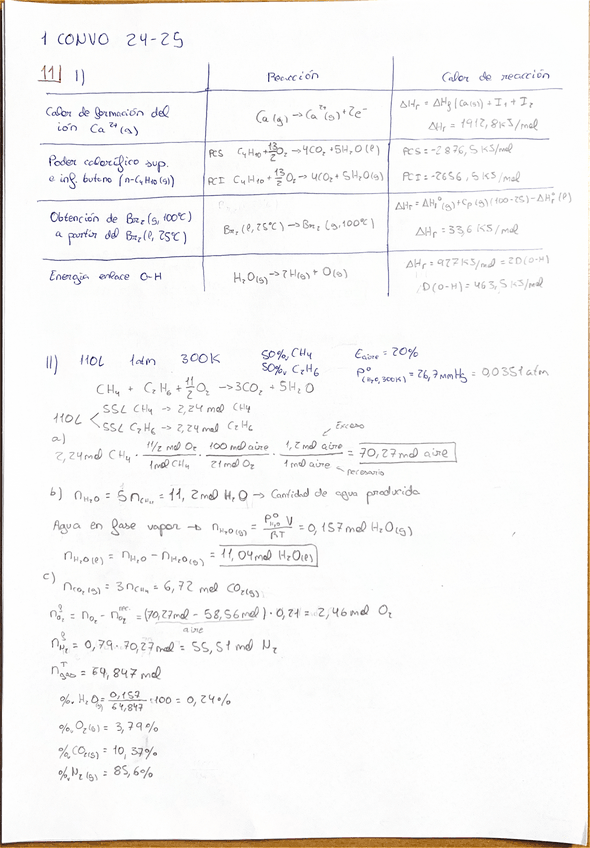 1 CONVO 24-25
11| I)
Reacción
Calor de reacción
Calor de formación del ión Ca²⁺(g)
Ca(g) → Ca²⁺(g) + 2e⁻
ΔHr = ΔHf(Ca(g)) + I₁ + I₂
ΔHr = 1912,8 kJ/mol
Poder calorífico sup. e inf. butano (n-C₄H₁₀(g))
PCS C₄H₁₀ + 13/2 O₂ → 4CO₂ + 5H₂O(l)
PCI C₄H₁₀ + 13/2 O₂ → 4CO₂ + 5H₂O(g)
PCS = -2876,5 kJ/mol
PCI = -2656,5 kJ/mol
Obtención de Br₂(g,100ºC) a partir del Br₂(l,25ºC)
Br₂(l,25ºC) → Br₂(g,100ºC)
ΔHr = ΔHf⁰(g) + Cp(g)(100-25) - ΔHf⁰(l)
ΔHr = 33,6 kJ/mol
Energía enlace O-H
H₂O(g) → 2H(g) + O(g)
ΔHr = 927 kJ/mol = 2D(O-H)
D(O-H) = 463,5 kJ/mol
II) 110L 1atm 300K 50% CH₄ Eaire = 20%
50% C₂H₆ P⁰(H₂O,300K) = 26,7 mmHg = 0,0351 atm
CH₄ + C₂H₆ + 11/2 O₂ → 3CO₂ + 5H₂O
110L < 55L CH₄ → 2,24 mol CH₄
55L C₂H₆ → 2,24 mol C₂H₆
a) Exceso
2,24 mol CH₄ · 11/2 mol O₂ / 1 mol CH₄ · 100 mol aire / 21 mol O₂ · 1,2 mol aire / 1 mol aire = 70,27 mol aire
necesario
b) nH₂O = 5nCH₄ = 11,2 mol H₂O → Cantidad de agua producida
Agua en fase vapor → nH₂O(g) = P⁰H₂O V / RT = 0,157 mol H₂O(g)
nH₂O(l) = nH₂O - nH₂O(g) = 11,04 mol H₂O(l)
c) nCO₂(g) = 3nCH₄ = 6,72 mol CO₂(g)
= nO₂ - = (70,27 mol - 58,56 mol) · 0,21 = 2,46 mol O₂
aire
= 0,79 · 70,27 mol = 55,51 mol N₂
nᵀgas = 64,847 mol
%. H₂O(g) = 0,157 / 64,847 · 100 = 0,24%
%O₂(g) = 3,79%
%CO₂(g) = 10,37%
%N₂(g) = 85,6%